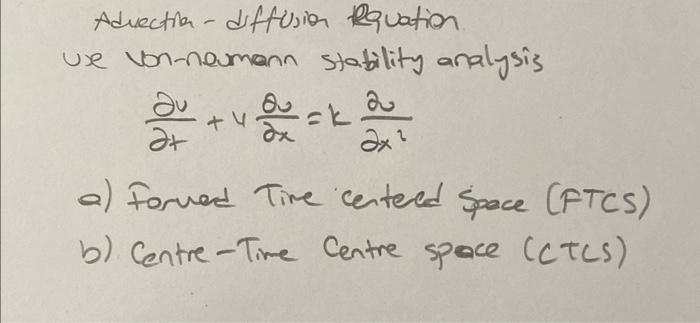 Advection - diffusion Equation
use von-neumann stability analysis
∂u/∂t + u ∂u/∂x = k ∂u/∂x²
a) Forward Time centered Space (FTCS)
b) Centre-Time Centre space (CTCS)